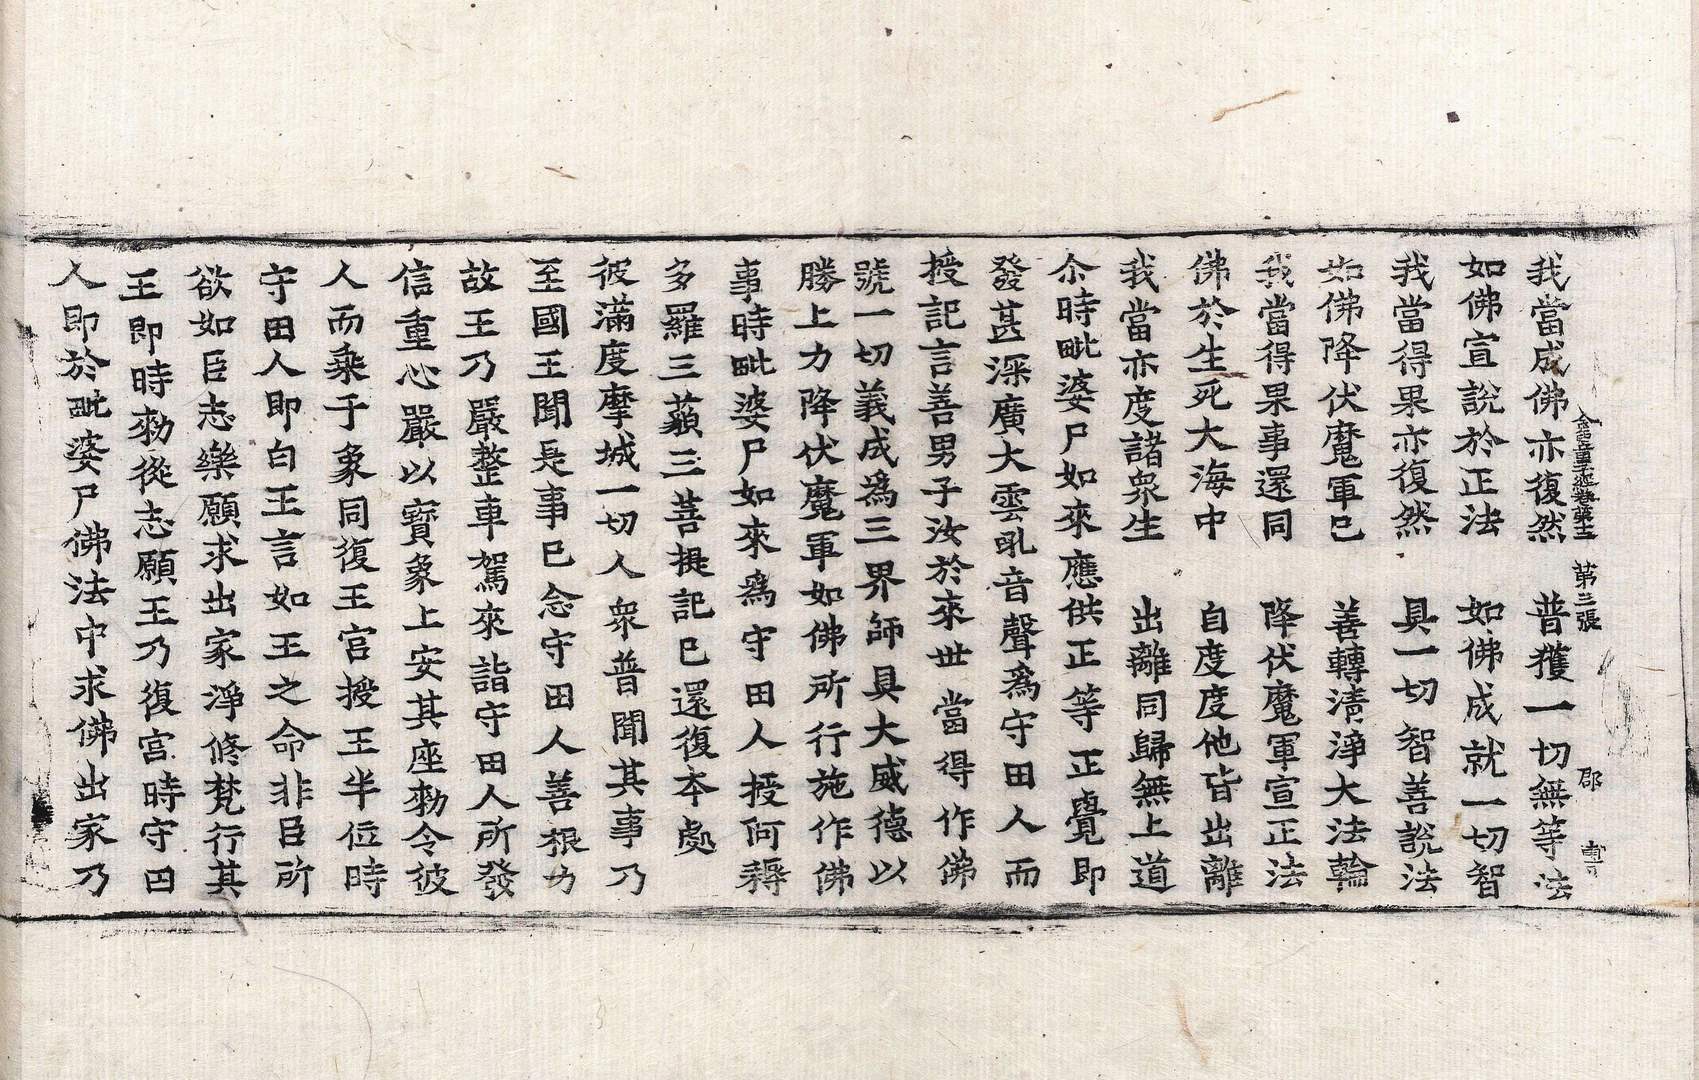 金色童子經卷第十二 第三張 郡
我當成佛亦復然 普獲一切無等法
如佛宣說於正法 如佛成就一切智
我當得果亦復然 具一切智善說法
如佛降伏魔軍已 善轉清淨大法輪
我當得果事還同 降伏魔軍宣正法
佛於生死大海中 自度度他皆出離
我當亦度諸衆生 出離同歸無上道
尒時毗婆尸如來應供正等正覺即
發甚深廣大雲吼音聲爲守田人而
授記言善男子汝於來世當得作佛
號一切義成爲三界師具大威德以
勝上力降伏魔軍如佛所行施作佛
事時毗婆尸如來爲守田人授阿耨
多羅三藐三菩提記已還復本處
彼滿度摩城一切人衆普聞其事乃
至國王聞是事已念守田人善根力
故王乃嚴整車駕來詣守田人所發
信重心嚴以寶象上安其座勑令彼
人而乘于象同復王宮授王半位時
守田人即白王言如王之命非臣所
欲如臣志樂願求出家淨修梵行其
王即時勑從志願王乃復宮時守田
人即於毗婆尸佛法中求佛出家乃